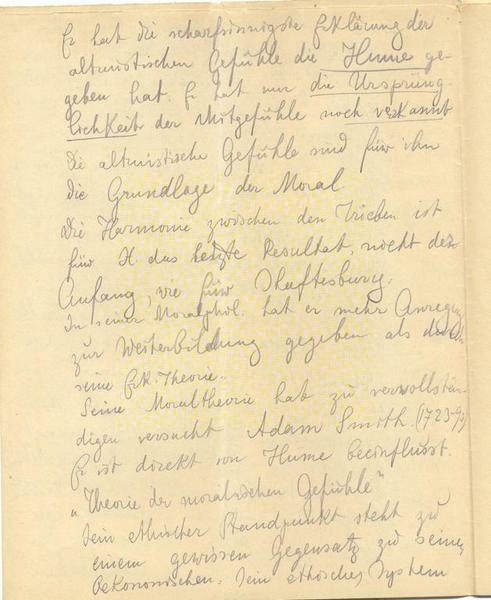 Er hat die scharfsinnigste Erklärung der
altruistischen Gefühle die Hume ge-
geben hat. Er hat nur die Ursprüng-
lichkeit der Mitgefühle noch verkannt
Die altruistische Gefühle sind für ihn
die Grundlage der Moral.
Die Harmonie zwischen den Trieben ist
für H. das letzte Resultat, nicht der
Anfang, wie für Shaftesbury.
In seiner Moralphil. hat er mehr Anregung
zur Weiterbildung gegeben als durch
seine Erk. Theorie.
Seine Moraltheorie hat zu vervollstän-
digen versucht Adam Smith. (1723-90)
Er ist direkt von Hume beeinflusst.
"Theorie der moralischen Gefühle"
Sein ethischer Standpunkt steht zu
einem gewissen Gegensatz zu seinem
Oekonomischen. Sein ethisches System